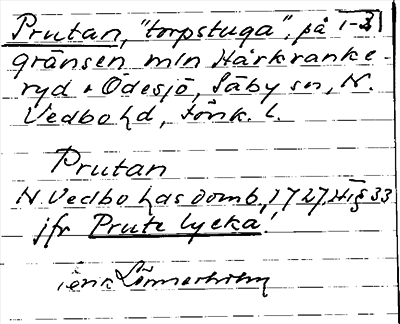 Prutan, "torpstuga", på
gränsen mln Hårkranke-
ryd o Ödesjö, Säby sn, N.
Vedbo hd, Jönk. l.
Prutan
N. Vedbo hds domb. 1727 HI § 33
jfr Prute lycka!
Lännerholm